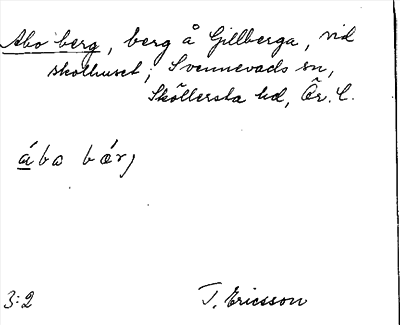 Abo berg, berg å Gillberga, vid
skolhuset; Svennevads sn,
Sköllersta hd, Ör. l.
ába bærj
3:2
T. Ericsson